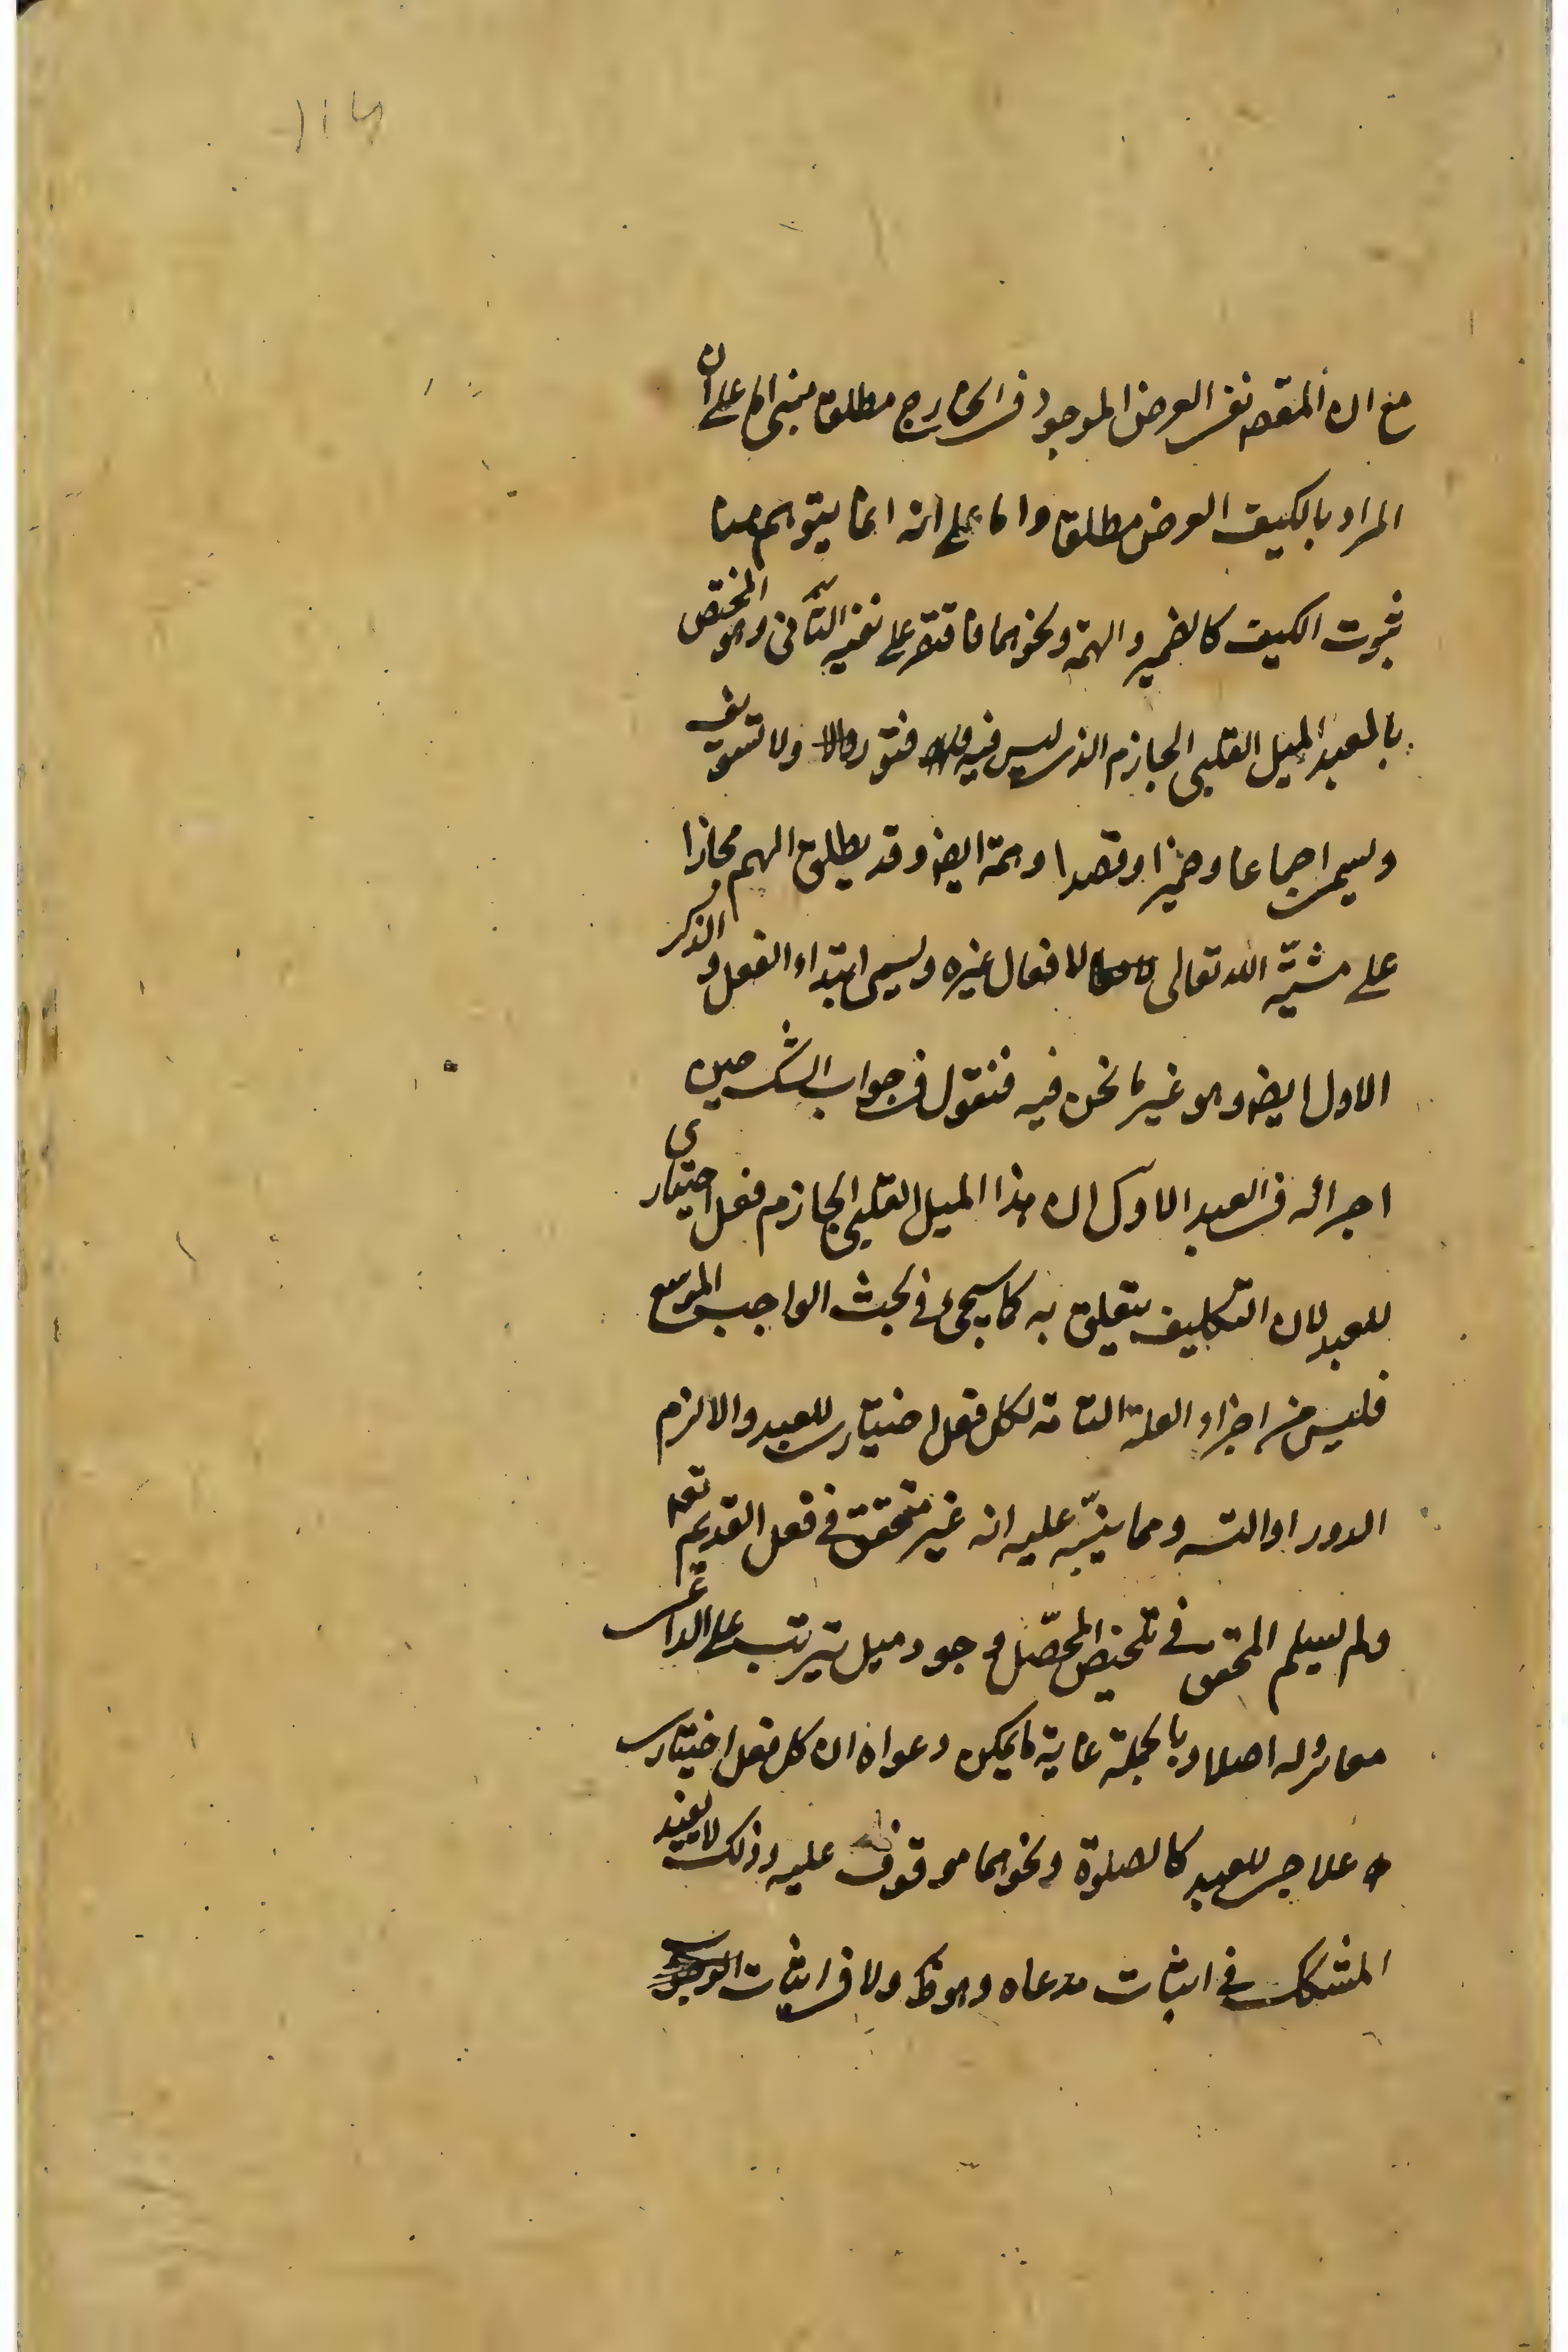 مع ان المقصد نفى العرض الموجود فى الخارج مطلقا مبنى اما على ان
المراد بالكيف العرض مطلقا واما على انه انما يتوهم هنا
ثبوت الكيف كالضمير والهمة ونحوهما فاقتصر على نفيه الثانى وهو المختص
بالعبد الميل القلبى الجازم الذى ليس فيه فتور ولا تسويف
ويسمى اجماعا وضميرا وقصدا وهمة ايضا وقد يطلق الهم مجازا
على مشيّة الله تعالى لافعال غيره ويسمى ابتداء الفعل والذكر
الاول ايضا وهو غير ما نحن فيه فنقول فى جواب الشك حين
اجرائه فى العبد الاول ان هذا الميل القلبى الجازم فعل اختيارى
للعبد لان التكليف يتعلق به كما سيجىء فى بحث الواجب الموسع
فليس من اجزاء العلة التامة لكل فعل اختيارى للعبد والا لزم
الدور او التسـ ومما ينبّه عليه انه غير متحقق فى فعل القديم تعـ
ولم يسلم المحقق فى تلخيص المحصّل وجود ميل يترتب على الداعى
مغاير له اصلا وبالجملة غاية ما يمكن دعواه ان كل فعل اختيارى
علاجى للعبد كالصلوة ونحوهما موقوف عليه وذلك لا يفيد
المشكك فى اثبات مدعاه وهو ظ ولا فى اثبات الوجوب